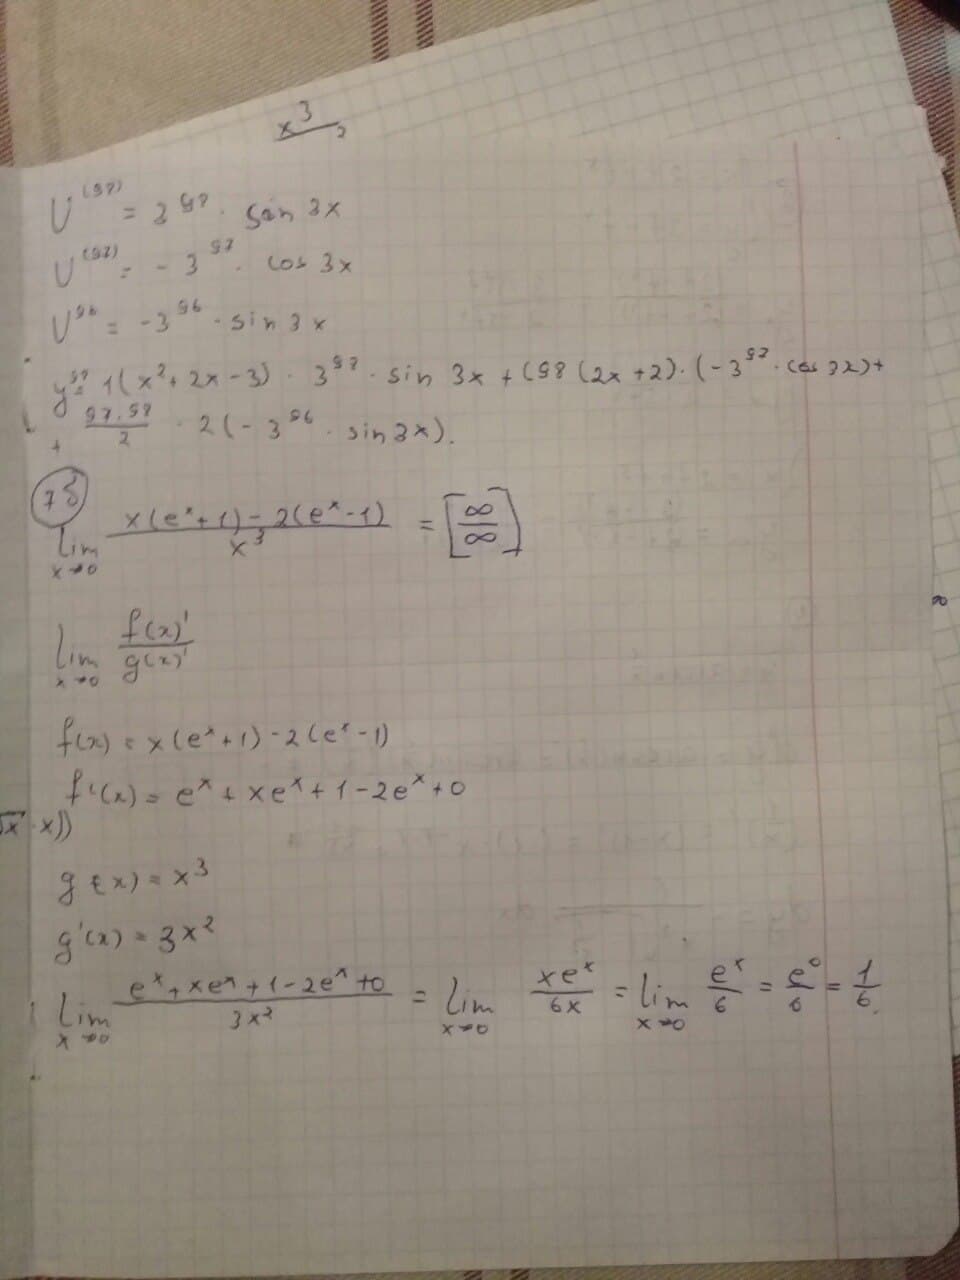 x³
U⁽⁹⁸⁾ = 3⁹⁸ · sin 3x
U⁽⁹⁷⁾ = - 3⁹⁷ · cos 3x
U⁹⁶ = -3⁹⁶ · sin 3x
y⁹⁸ = 1(x² + 2x - 3) · 3⁹⁸ · sin 3x + (98 (2x + 2) · (- 3⁹⁷ · cos 3x) +
+ 97·98/2 · 2(- 3⁹⁶ · sin 3x).
7б
lim x→0 (x(eˣ + 1) - 2(eˣ - 1))/x³ = [∞/∞]
lim x→0 f(x)'/g(x)'
f(x) = x(eˣ + 1) - 2(eˣ - 1)
f'(x) = eˣ + xeˣ + 1 - 2eˣ + 0
√x · x))
g(x) = x³
g'(x) = 3x²
lim x→0 (eˣ + xeˣ + 1 - 2eˣ + 0)/3x² = lim x→0 xeˣ/6x = lim x→0 eˣ/6 = e⁰/6 = 1/6.